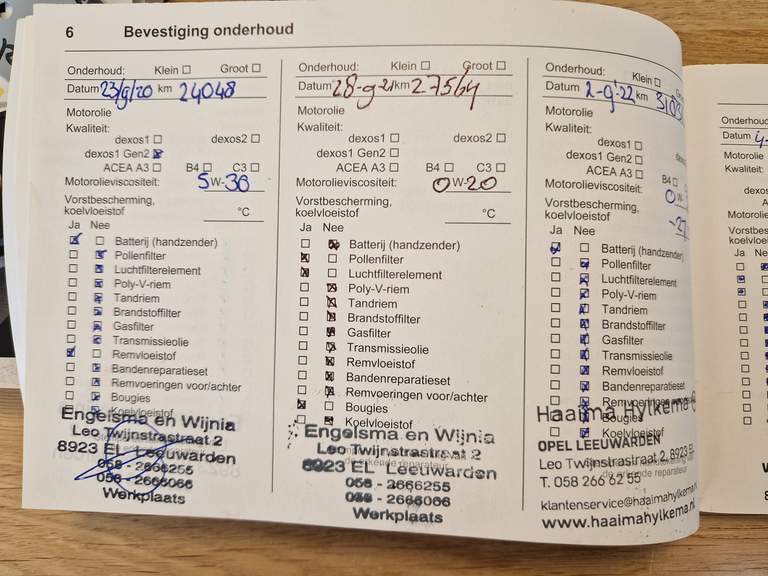 6 Bevestiging onderhoud
Onderhoud: Klein Groot
Datum 23/9/20 km 24048
Motorolie
Kwaliteit:
dexos1 dexos2
dexos1 Gen2
ACEA A3 B4 C3
Motorolieviscositeit: 5 W-30
Vorstbescherming,
koelvloeistof °C
Ja Nee
Batterij (handzender)
Pollenfilter
Luchtfilterelement
Poly-V-riem
Tandriem
Brandstoffilter
Gasfilter
Transmissieolie
Remvloeistof
Bandenreparatieset
Remvoeringen voor/achter
Bougies
Koelvloeistof
Engelsma en Wijnia
Leo Twijnstrastraat 2
8923 EL Leeuwarden
058 - 2666255
058 - 2666066
Werkplaats
Onderhoud: Klein Groot
Datum 28-9-21 km 27564
Motorolie
Kwaliteit:
dexos1 dexos2
dexos1 Gen2
ACEA A3 B4 C3
Motorolieviscositeit: 0 W-20
Vorstbescherming,
koelvloeistof °C
Ja Nee
Batterij (handzender)
Pollenfilter
Luchtfilterelement
Poly-V-riem
Tandriem
Brandstoffilter
Gasfilter
Transmissieolie
Remvloeistof
Bandenreparatieset
Remvoeringen voor/achter
Bougies
Koelvloeistof
Engelsma en Wijnia
Leo Twijnstrastraat 2
8923 EL Leeuwarden
058 - 2666255
058 - 2666066
Werkplaats
Onderhoud: Klein
Datum 2-9-'22 km
Motorolie
Kwaliteit:
dexos1
dexos1 Gen2
ACEA A3 B4
Motorolieviscositeit: 0 W-
Vorstbescherming,
koelvloeistof -27
Ja Nee
Batterij (handzender)
Pollenfilter
Luchtfilterelement
Poly-V-riem
Tandriem
Brandstoffilter
Gasfilter
Transmissieolie
Remvloeistof
Bandenreparatieset
Remvoeringen
Bougies
Koelvloeistof
Haaima Hylkema
OPEL LEEUWARDEN
Leo Twijnstrastraat 2, 8923 EL
T. 058 266 62 55
klantenservice@haaimahylkema.nl
www.haaimahylkema.nl
Onderhoud:
Datum 4-
Motorolie
Kwaliteit:
Ja Nee